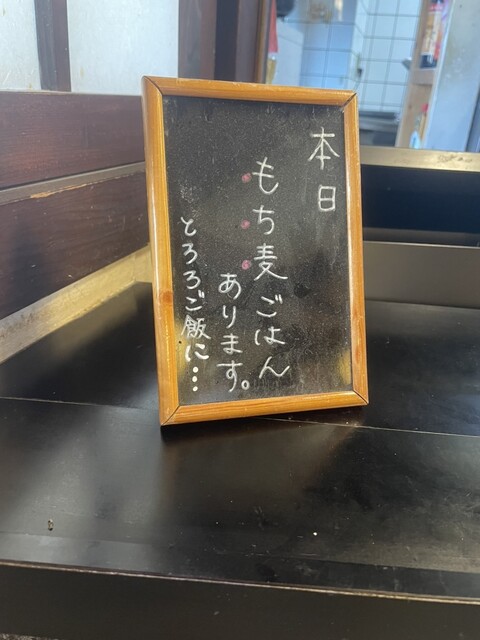 本日
もち麦ごはん
あります。
とろろご飯に…